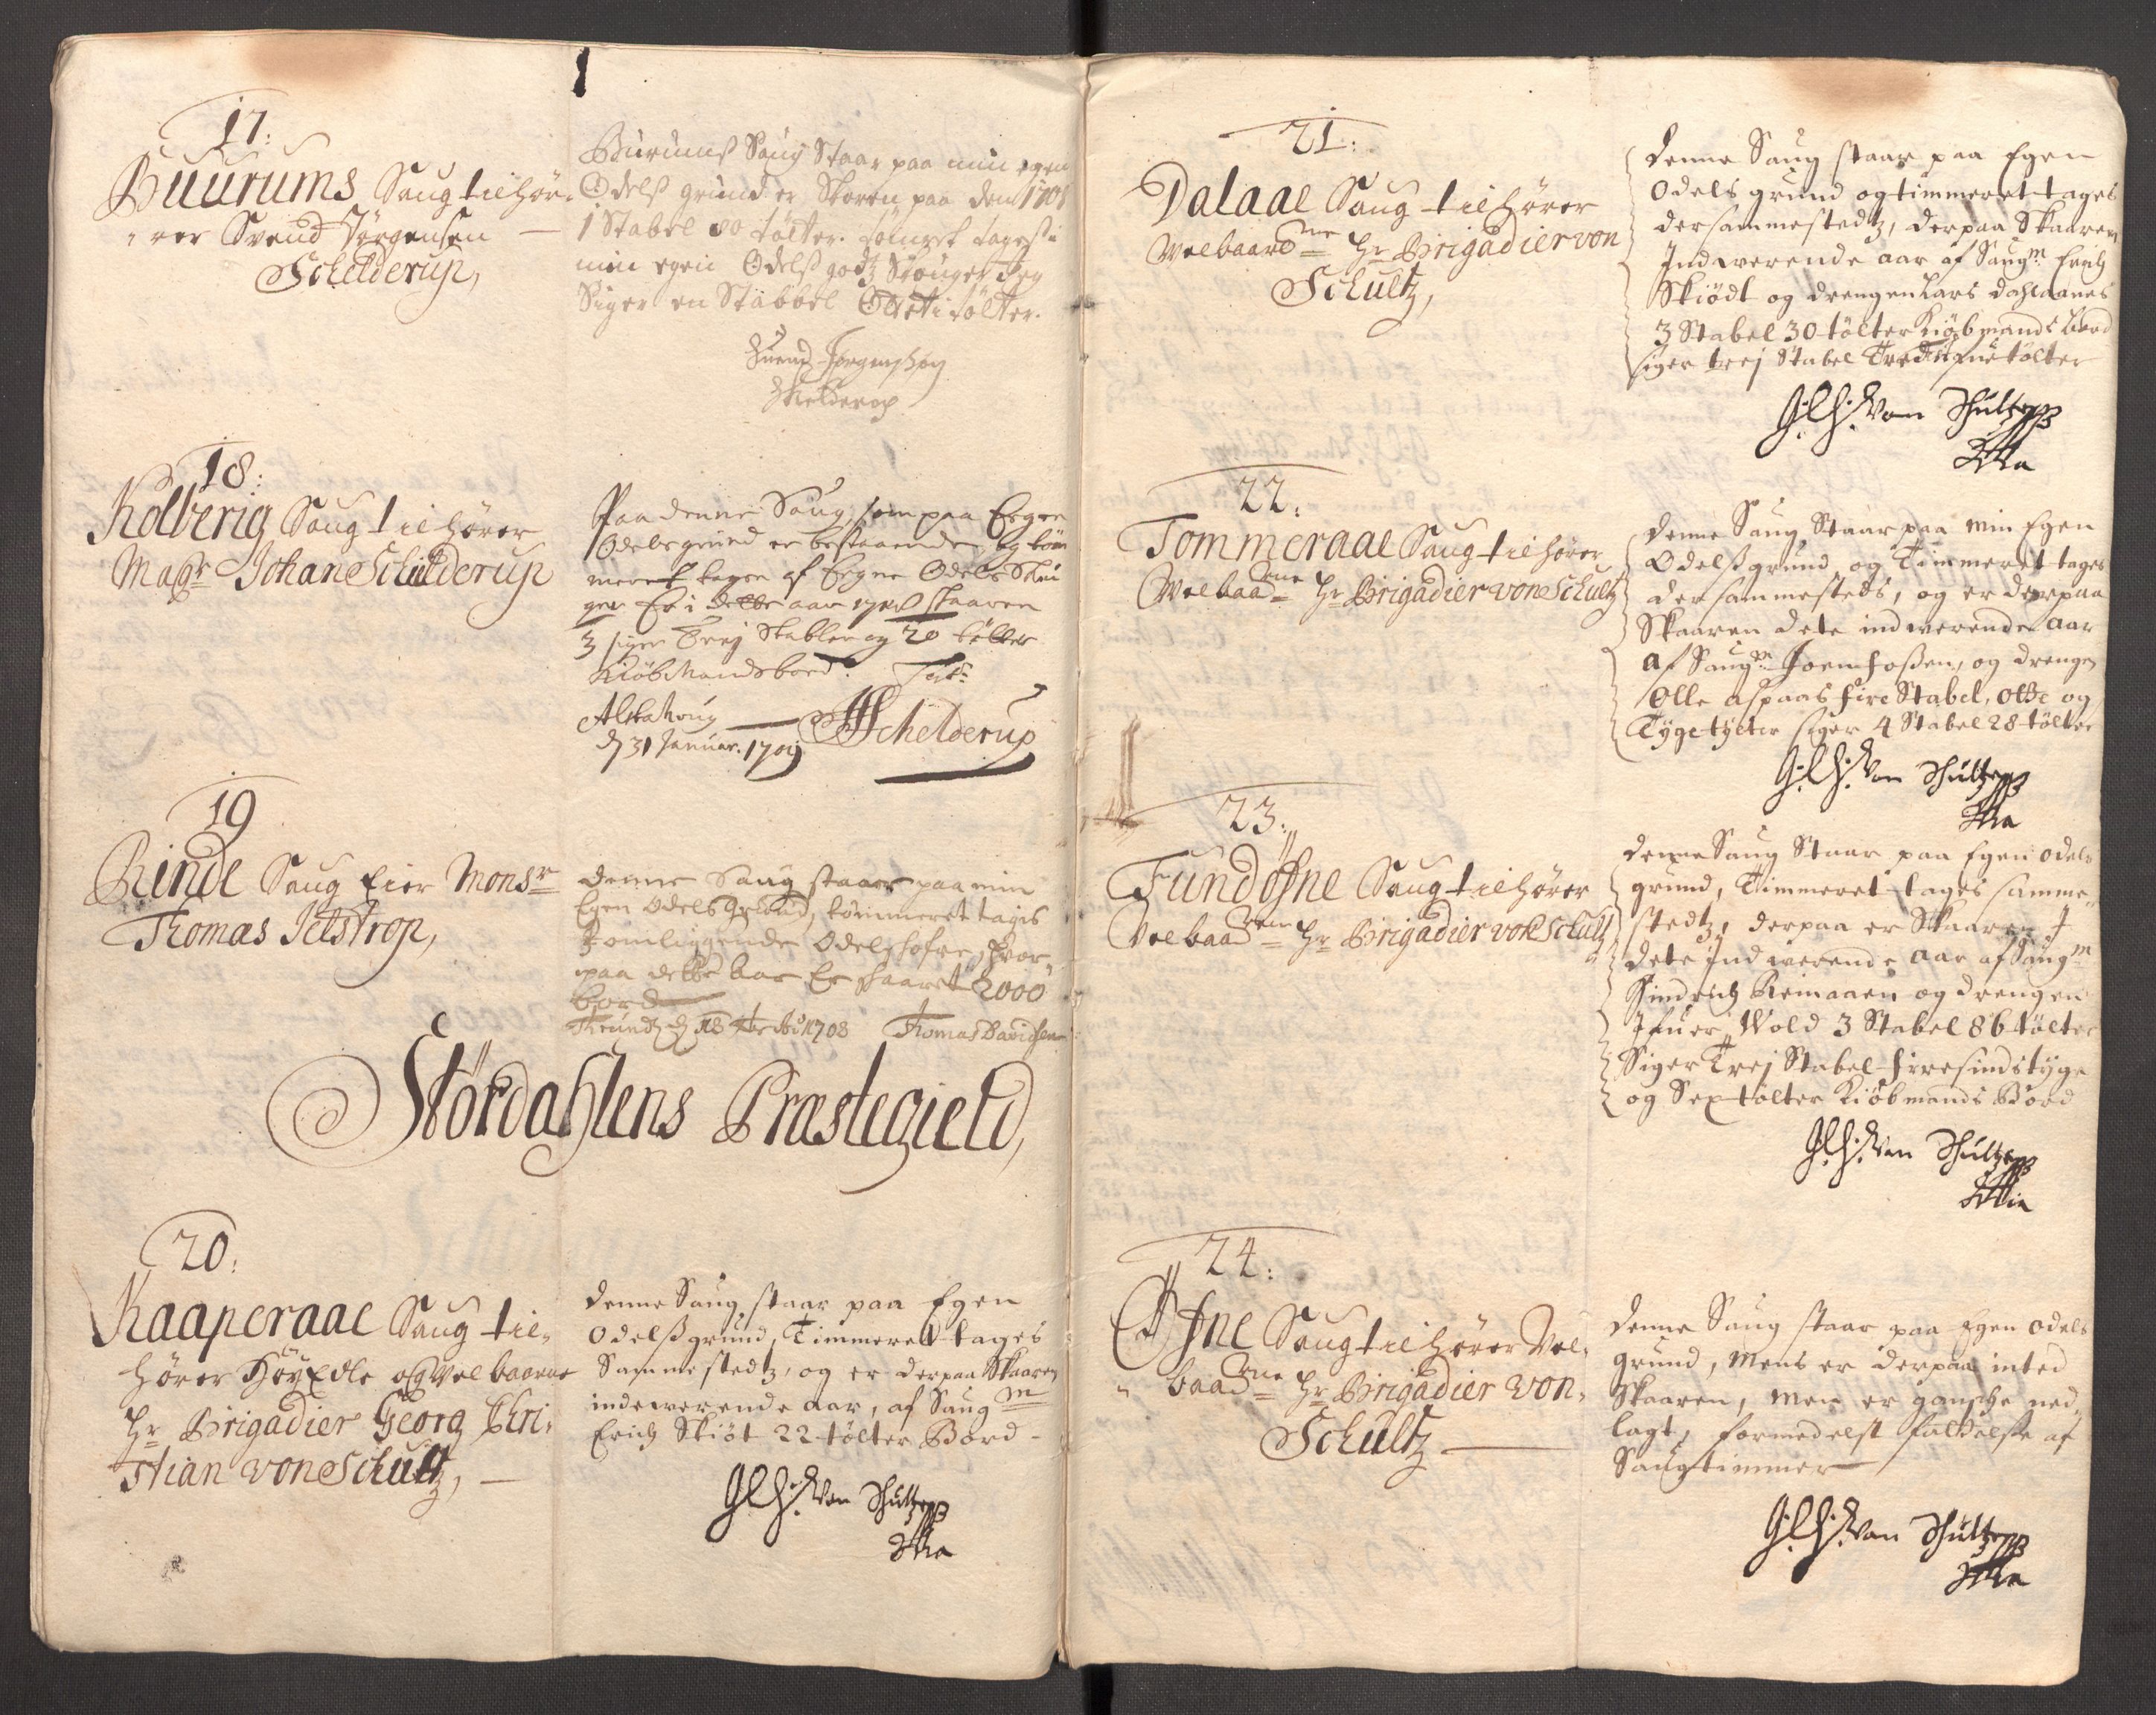 17:
Buurums Saug tilhør-
rer Svend Jørgensen
Schelderup,
Burums Saug Staar paa min egen
Odelß grund er Skoren paa den 1708
1 Stabel 80 tölter. tömret tages i
min egen Odelß godtz Skouger Jeg
Siger en Stabbel Otteti tölter.
Suend Jørgensøn
Schelderop
18:
Kolberig Saug tilhører
Magr Johan Schielderup
Paa denne Saug, som paa Eegen
Odelsgrund er bestaaende, og töm
meret tages af Eegne Odels Skou
ger Er i dette aar 1708 skaaren
3 siger Trej Stabler og 20 tölter
Kiøbmandsbord.
Alstahoug
d 31 Januar. 1709 Schelderup
19
Rinde Saug Eier Monsr
Thomas Jelstrop,
denne Saug staar paa min
Egen Odels Grund, tömmeret tages
I omliggende Odelshofre, hvor
paa dette Aar Er skaaret 2000
bord
d 18 1708 Thomas Davidsen
Stördahlens Præstegield,
20:
Kaaperaae Saug til-
hører HöyEdle og Velbaarne
Hr Brigadier Georg Chri-
stian von Schultz,
denne Saug staar paa Egen
Odelß grund, Timmeret tages
Sammestedtz, og er derpaa Skaaren
indeverende aar, af Saugm
Erich Skiöt 22 tölter Bord-
von Schultz
21:
Dalaae Saug tilhører
Velbaarne Hr Brigadier von
Schultz,
denne Saug staar paa Egen
Odels grund og timmeret tages
dersammestedtz, derpaa Skaaren
Indverende aar af Saugm Erich
Skiödt og drengen Lars dahlaanes
3 Stabel 30 tölter Kiöbmands bord
siger trej Stabel Tredtiufue tölter
von Schultz
22:
Tommeraae Saug tilhører
Velbaarne Hr Brigadier von Schultz
denne Saug Staar paa min Egen
Odelß grund, og Timmeret tages
dersammesteds, og er derpaa
Skaaren dete indverende Aar
af Saugm Joen foßen, og drengen
Olle aspaas fire Stabel, otte og
Tyge tylter siger 4 Stabel 28 tölter
von Schultz
23:
Fundöfne Saug tilhører
Velbaarne Hr Brigadier von Schultz
denne Saug Staar paa Egen odels
grund, Timmeret tages samme-
stedtz, derpaa er Skaaren I
dete Indverende Aar af Saugm
Hindrich Remaaen og drengen
Ifuer Wold 3 Stabel 86 tölter
Siger Trej Stabel firesindstyge
og Sex tölter Kiöbmands Bord
von Schultz
24:
Öfne Saug tilhører Vel-
baarne Hr Brigadier von
Schultz
denne Saug staar paa Egen odels
grund, Mens er derpaa inted
Skaaren, men er gansche ned-
lagt, formedelst faldelße af
Saugtimmer
von Schultz